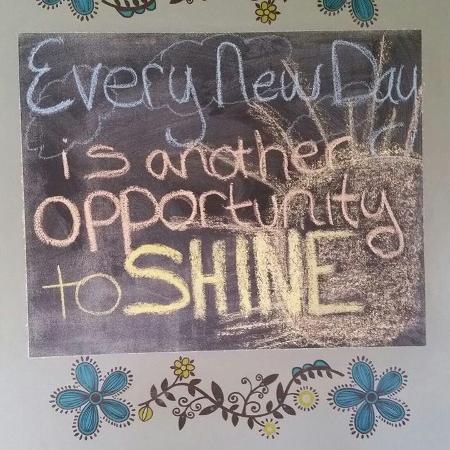 Every New Day
is another
opportunity
to SHINE